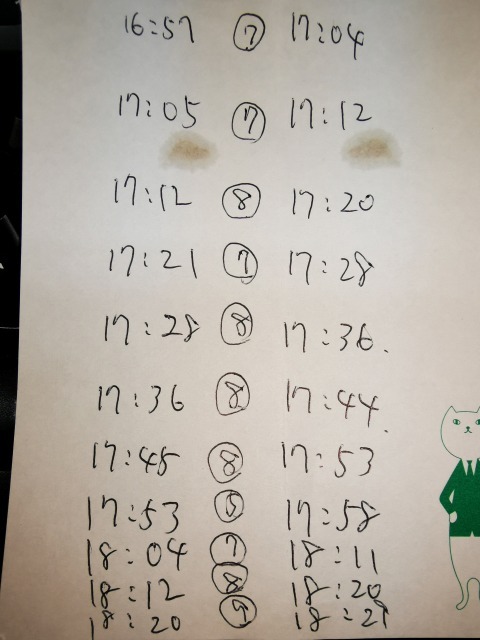 16:57 ⑦ 17:04
17:05 ⑦ 17:12
17:12 ⑧ 17:20
17:21 ⑦ 17:28
17:28 ⑧ 17:36.
17:36 ⑧ 17:44.
17:45 ⑧ 17:53
17:53 ⑤ 17:58
18:04 ⑦ 18:11
18:12 ⑧ 18:20
18:20 ⑤